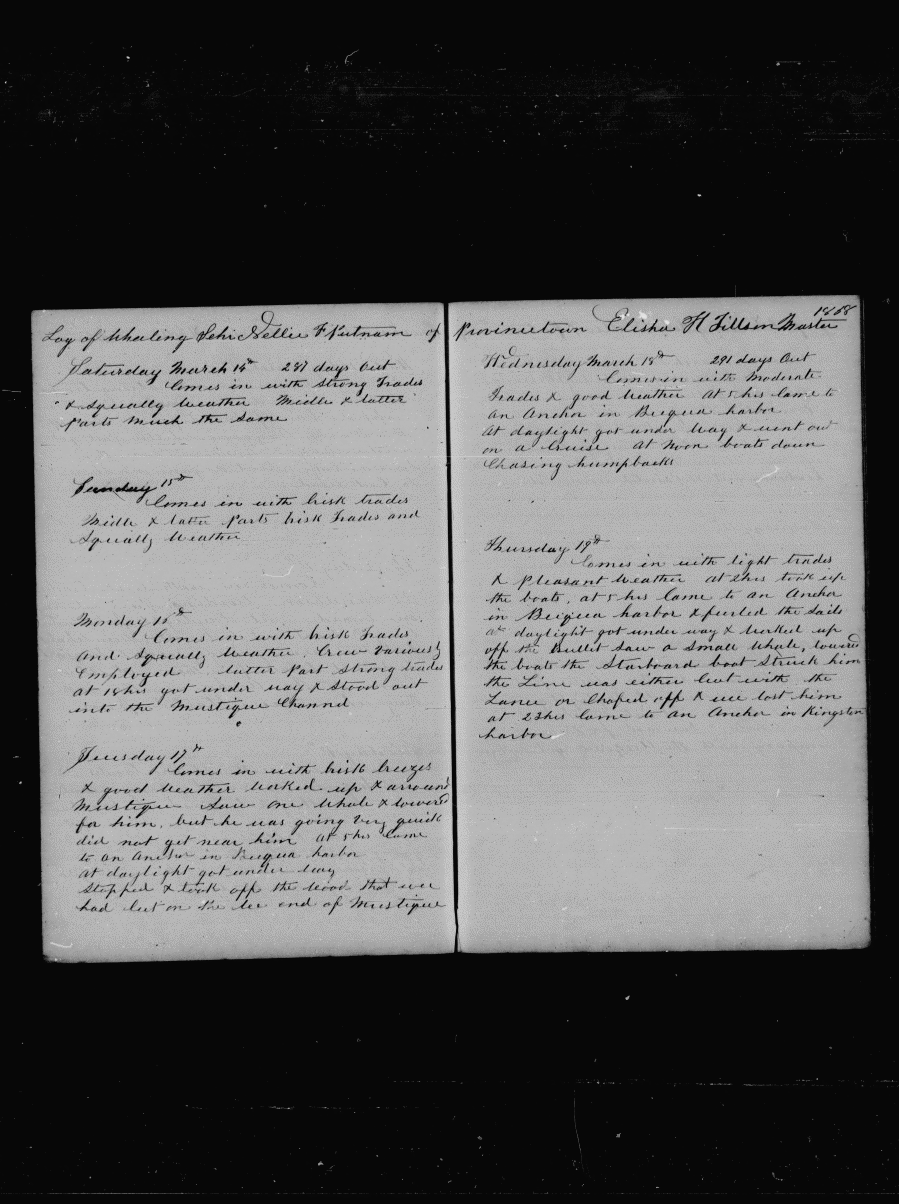 Log of Whaling Schr Nellie F Putnam of Provincetown Elisha H Tillson Master
1868
Saturday March 14th 287 days Out
Comes in with Strong Trades
& Squally Weather Midle & latter
Parts Much the Same
Sunday 15th
Comes in with brisk trades
Midle & latter Parts brisk Trades and
Squally Weather
Monday 16th
Comes in with brisk Trades
and Squally Weather. Crew Variously
Employed latter Part Strong trades
at 18 hrs got under way & Stood out
into the Mustique Channel
Tuesday 17th
Comes in with brisk breezes
& good Weather Worked up & arround
Mustique Saw one Whale & lowered
for him, but he was going very quick
did not get near him at 5 hrs Came
to an Anchor in Bequa harbor
at daylight got under way
Stopped & took off the Wood that we
had cut on the lee end of Mustique
Wednesday March 18th 291 days Out
Comes in with Moderate
Trades & good Weather At 5 hrs Came to
an Anchor in Bequa harbor
At daylight got under Way & went out
on a Cruise At Noon boats down
Chasing humpbacks
Thursday 19th
Comes in with light trades
& Pleasant Weather at 2 hrs took up
the boats, at 5 hrs Came to an Anchor
in Bequa harbor & furled the Sails
at daylight got under way & Worked up
off the Bullet Saw a Small Whale, lowered
the boats the Starboard boat Struck him
the Line was either Cut with the
Lance or Chafed off & we lost him
at 23 hrs Came to an Anchor in Kingston
harbor